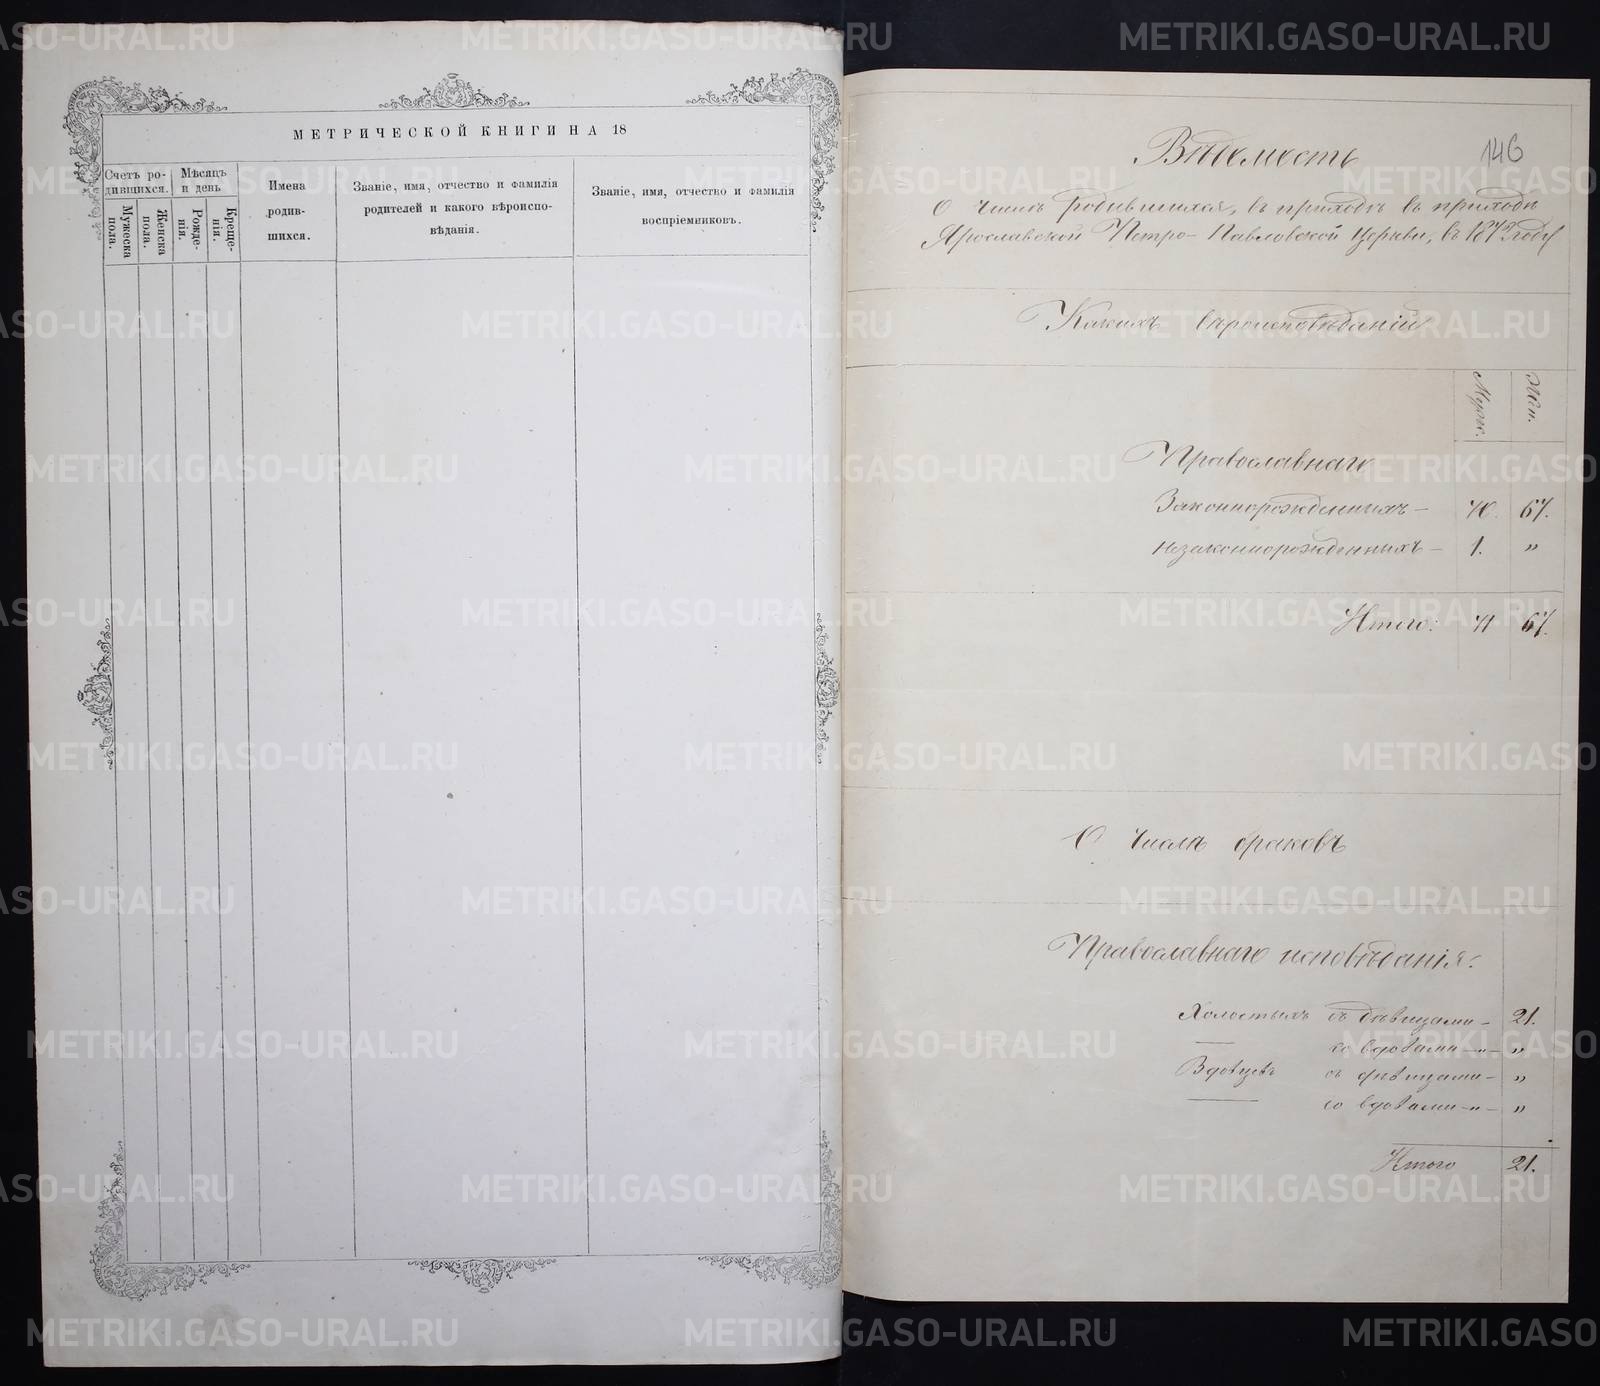 МЕТРИЧЕСКОЙ КНИГИ НА 18
Счетъ ро-
дившихся.
Мѣсяцъ
и день
Мужеска
пола.
Женска
пола.
Рожде-
нія.
Креще-
нія.
Имена
родив-
шихся.
Званіе, имя, отчество и фамилія
родителей и какого вѣроиспо-
вѣданія.
Званіе, имя, отчество и фамилія
воспріемниковъ.
Вѣдомость
146
О числѣ родившихся, въ приходѣ въ приходѣ
Ярославской Петро-Павловской церкви, въ 1872 году
Какихъ вѣроисповѣданій
Муж.
Жен.
Православнаго
Законнорожденныхъ — 70. 67.
Незаконнорожденныхъ — 1. „
Итого: 71 67.
О числѣ браковъ
Православнаго исповѣданія:
Холостыхъ съ дѣвицами — 21.
— со вдовами —„— „
Вдовцевъ съ дѣвицами — „
— со вдовами —„— „
Итого 21.
METRIKI.GASO-URAL.RU